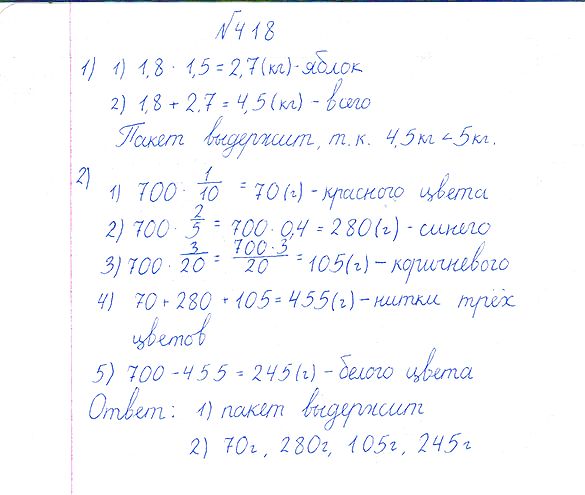 №418
1) 1) 1,8 · 1,5 = 2,7 (кг) - яблок
2) 1,8 + 2,7 = 4,5 (кг) - всего
Пакет выдержит, т.к. 4,5кг < 5кг.
2) 1) 700 · 1/10 = 70 (г) - красного цвета
2) 700 · 2/5 = 700 · 0,4 = 280 (г) - синего
3) 700 · 3/20 = 700·3/20 = 105 (г) - коричневого
4) 70 + 280 + 105 = 455 (г) - нитки трёх
цветов
5) 700 - 455 = 245 (г) - белого цвета
Ответ: 1) пакет выдержит
2) 70г, 280г, 105г, 245г